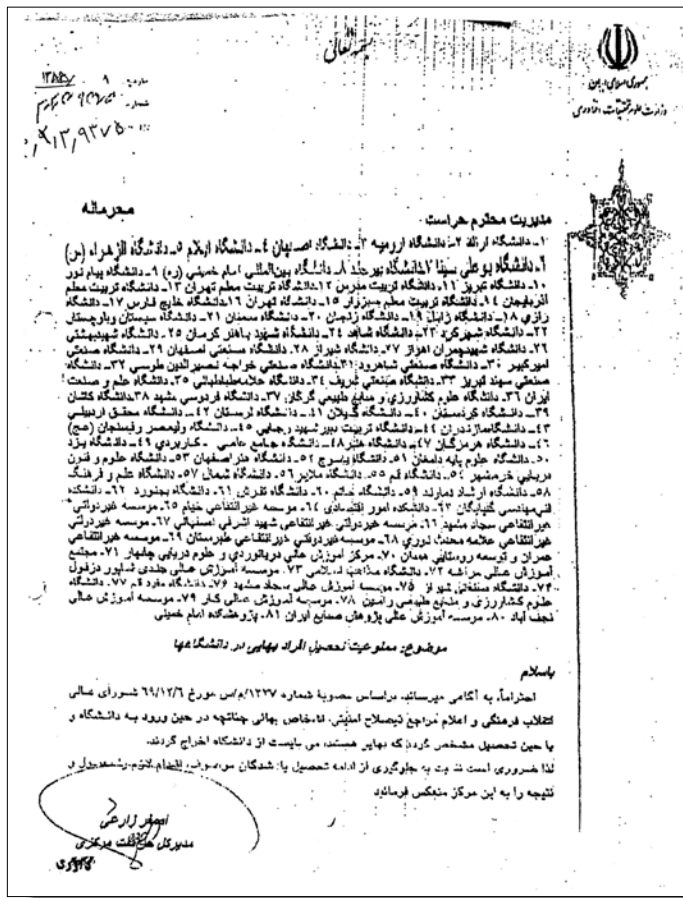 بسمه تعالی
جمهوری اسلامی ایران
وزارت علوم، تحقیقات و فناوری
تاریخ:
شماره:
محرمانه
مدیریت محترم حراست
۱- دانشگاه اراک ۲- دانشگاه ارومیه ۳- دانشگاه اصفهان ۴- دانشگاه ایلام ۵- دانشگاه الزهراء (س)
۶- دانشگاه بوعلی سینا ۷- دانشگاه بیرجند ۸- دانشگاه بین‌المللی امام خمینی (ره) ۹- دانشگاه پیام نور
۱۰- دانشگاه تبریز ۱۱- دانشگاه تربیت مدرس ۱۲- دانشگاه تربیت معلم تهران ۱۳- دانشگاه تربیت معلم
آذربایجان ۱۴- دانشگاه تربیت معلم سبزوار ۱۵- دانشگاه تهران ۱۶- دانشگاه خلیج فارس ۱۷- دانشگاه
رازی ۱۸- دانشگاه زابل ۱۹- دانشگاه زنجان ۲۰- دانشگاه سمنان ۲۱- دانشگاه سیستان وبلوچستان
۲۲- دانشگاه شهرکرد ۲۳- دانشگاه شاهد ۲۴- دانشگاه شهید باهنر کرمان ۲۵- دانشگاه شهیدبهشتی
۲۶- دانشگاه شهیدچمران اهواز ۲۷- دانشگاه شیراز ۲۸- دانشگاه صنعتی اصفهان ۲۹- دانشگاه صنعتی
امیرکبیر ۳۰- دانشگاه صنعتی شاهرود ۳۱- دانشگاه صنعتی خواجه نصیرالدین طوسی ۳۲- دانشگاه
صنعتی سهند تبریز ۳۳- دانشگاه صنعتی شریف ۳۴- دانشگاه علامه‌طباطبائی ۳۵- دانشگاه علم و صنعت
ایران ۳۶- دانشگاه علوم کشاورزی و منابع طبیعی گرگان ۳۷- دانشگاه فردوسی مشهد ۳۸- دانشگاه کاشان
۳۹- دانشگاه کردستان ۴۰- دانشگاه گیلان ۴۱- دانشگاه لرستان ۴۲- دانشگاه محقق اردبیلی
۴۳- دانشگاه مازندران ۴۴- دانشگاه تربیت دبیر شهید رجایی ۴۵- دانشگاه ولیعصر رفسنجان (عج)
۴۶- دانشگاه هرمزگان ۴۷- دانشگاه هنر ۴۸- دانشگاه جامع علمی - کاربردی ۴۹- دانشگاه یزد
۵۰- دانشگاه علوم پایه دامغان ۵۱- دانشگاه یاسوج ۵۲- دانشگاه هنر اصفهان ۵۳- دانشگاه علوم و فنون
دریایی خرمشهر ۵۴- دانشگاه قم ۵۵- دانشگاه ملایر ۵۶- دانشگاه شمال ۵۷- دانشگاه علم و فرهنگ
۵۸- دانشگاه ارشاد دماوند ۵۹- دانشگاه خاتم ۶۰- دانشگاه تفرش ۶۱- دانشگاه بجنورد ۶۲- دانشکده
فنی‌مهندسی گلپایگان ۶۳- دانشکده امور اقتصادی ۶۴- موسسه غیرانتفاعی خیام ۶۵- موسسه غیردولتی
غیرانتفاعی سجاد مشهد ۶۶- موسسه غیردولتی غیرانتفاعی شهید اشرفی اصفهانی ۶۷- موسسه غیردولتی
غیرانتفاعی علامه محدث نوری ۶۸- موسسه غیردولتی غیرانتفاعی طبرستان ۶۹- موسسه غیرانتفاعی
عمران و توسعه روستایی همدان ۷۰- مرکز آموزش عالی دریانوردی و علوم دریایی چابهار ۷۱- مجتمع
آموزش عالی مراغه ۷۲- دانشگاه مذاهب اسلامی ۷۳- موسسه آموزش عالی جندی شاپور دزفول
۷۴- دانشگاه صنعتی شیراز ۷۵- موسسه آموزش عالی سجاد مشهد ۷۶- دانشگاه مفید قم ۷۷- دانشگاه
علوم کشاورزی و منابع طبیعی رامین ۷۸- موسسه آموزش عالی کار ۷۹- موسسه آموزش عالی
نجف آباد ۸۰- موسسه آموزش عالی پژوهش صنایع ایران ۸۱- پژوهشکده امام خمینی
موضوع: ممنوعیت تحصیل افراد بهایی در دانشگاهها
باسلام
احتراماً، به آگاهی میرساند، براساس مصوبهٔ شماره ۱۳۲۷/م/س مورخ ۶۹/۱۲/۶ شورای عالی
انقلاب فرهنگی و اعلام مراجع ذیصلاح امنیتی، اشخاص بهائی چنانچه در حین ورود به دانشگاه و
یا حین تحصیل مشخص گردد که بهایی هستند، می بایست از دانشگاه اخراج گردند.
لذا ضروری است نسبت به جلوگیری از ادامه تحصیل یاد شدگان موصوف، اقدام لازم و
نتیجه را به این مرکز منعکس فرمائید
اصغر زارعی
مدیرکل حراست مرکزی